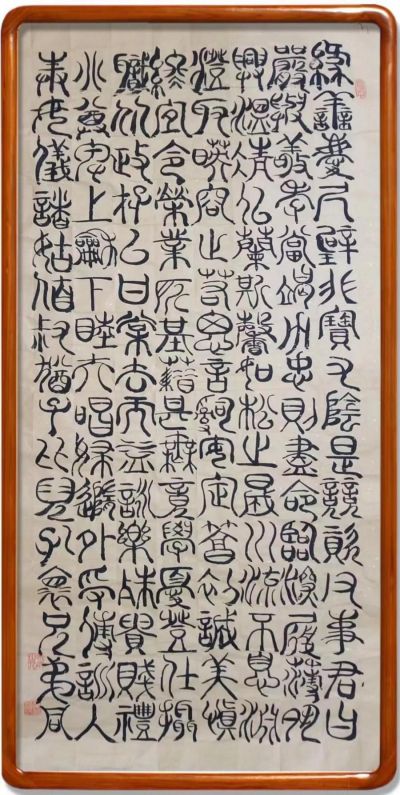 緣善慶尺璧非寶寸陰是競資父事君曰
嚴與敬孝當竭力忠則盡命臨深履薄夙
興溫凊似蘭斯馨如松之盛川流不息淵
澄取映容止若思言辭安定篤初誠美慎
終宜令榮業所基籍甚無竟學優登仕攝
職從政存以甘棠去而益詠樂殊貴賤禮
別尊卑上和下睦夫唱婦隨外受傅訓入
奉母儀諸姑伯叔猶子比兒孔懷兄弟同